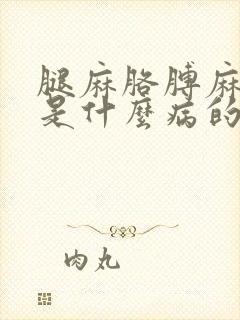 腿麻胳膊麻
是什麼病的
肉丸